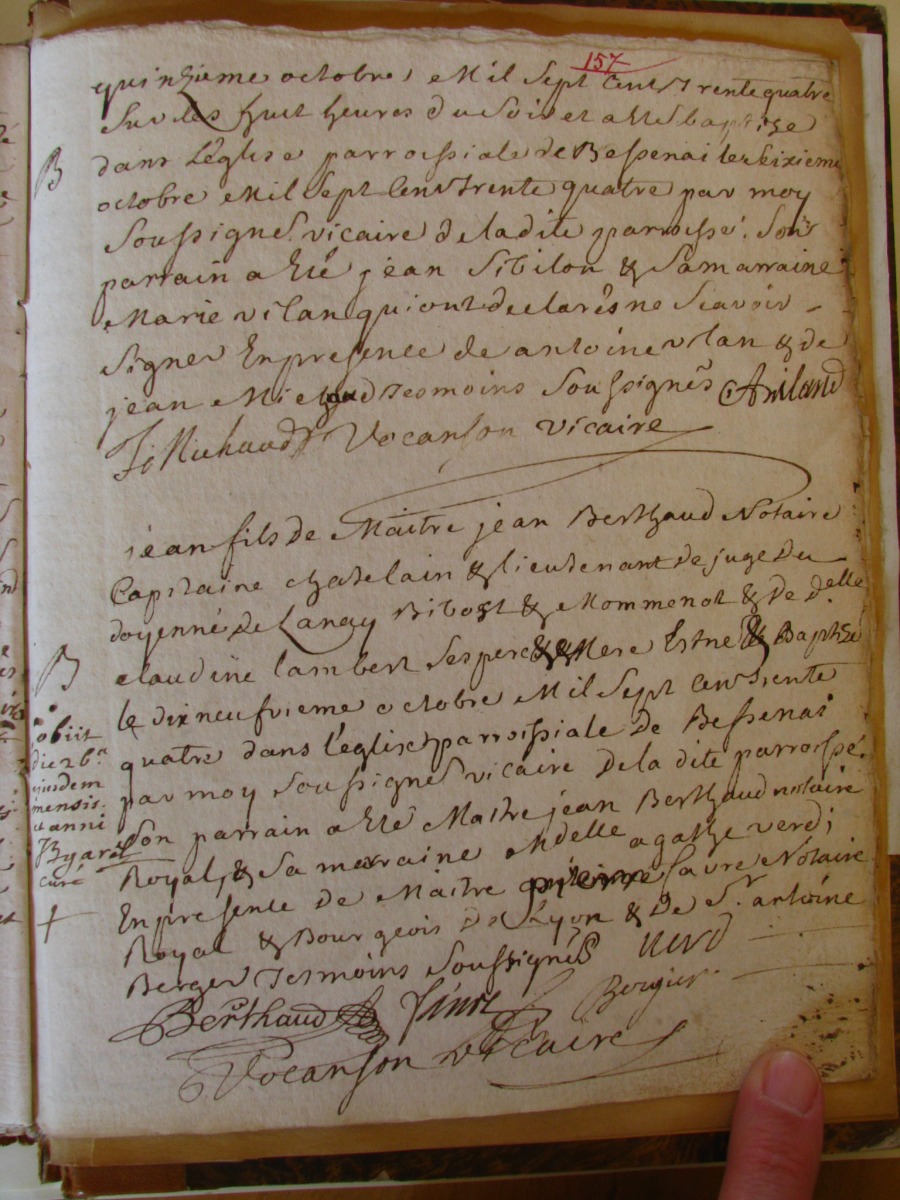 157
quinzieme octobre, Mil Sept Cent Trente quatre
Sur les huit heures du Soir et a été baptisé
B
dans L'eglise parroissiale de Bessenai le seixieme
octobre Mil Sept Cent Trente quatre par moy
Soussigné vicaire de la dite parroisse. Son
parrain a été jean Sibilon & Sa marraine
Marie vilan qui ont declarés ne Scavoir -
Signer En presence de antoine vilan & de
jean Michaud Tesmoins Soussignés AViland
Jo Michaud Vocanson vicaire
jean fils de Maitre jean Berthaud Notaire
Capitaine chatelain & lieutenant de juge du
doyenné de Lanay Bibost & Mommenot & De d.elle
claudine lambert Ses pere & Mere Est né & Baptisé
B
le dixneufvieme octobre Mil Sept Cent Trente
quatre dans l'eglise parroissiale de Bessenai
par moy Soussigné vicaire de la dite parroisse.
Son parrain a été Maitre jean Berthaud notaire
Royal, & Sa marraine Mdelle agathe verd;
En presence de Maitre favre Notaire
Royal & Bourgeois de Lyon & de Sr. antoine
Berger Tesmoins Soussignés verd
Berthaud favre Bergier
Vocanson vicaire
obiit
die 26.a
ejusdem
mensis
et anni
Byard
curé